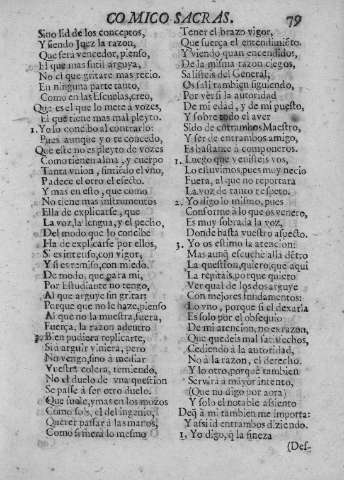 COMICO SACRAS. 79
Sino lid de los conceptos,
Y siendo Juez la razon,
Que sera vencedor, pienso,
El que mas sutil arguya,
No el que gritare mas recio.
En ninguna parte tanto,
Como en las Escuelas, creo,
Que es el que lo mete à vozes,
El que tiene mas mal pleyto.
1. Yo lo concibo al contrario:
Pues aunque yo te concedo,
Que este no es pleyto de vozes
Como tienen alma, y cuerpo
Tanta vnion, sintiẽdo el vno,
Padece el otro el efecto.
Y mas en esto, que como
No tiene mas instrumentos
Ella de explicarse, que
La voz, la lengua, y el pecho,
Del modo que lo concibe
Ha de explicarse por ellos,
Si es intenso, con vigor,
Y si es remiso, con miedo.
De modo, que, para mi,
Por Estudiante no tengo,
Al que arguye sin gritar;
Porque que no le haze, pienso
Al que no la muestra, fuera,
Fuerça, la razon adentro
3. Bien pudiera replicarte,
Si à arguir viniera, pero
No vengo, sino à mediar
Vuestra colera, temiendo,
No el duelo de vna question
Se passe à ser otro duelo.
Que suele, y mas en los mozos
Como sois, el del ingenio,
Querer passar à las manos,
Como si fuera lo mesmo
Tener el brazo vigor,
Que fuerça el entendimiẽto.
Y viendo quan encendidos,
De la misma razon ciegos,
Salisteis del General;
Os salì tambien siguiendo,
Por vèr si la autoridad
De mi edad, y de mi puesto,
Y sobre todo el aver
Sido de entrambos Maestro,
Y ser de entrambos amigo,
Es bastante à componeros.
1. Luego que venisteis vos,
Lo estuvimos, pues muy necio
Fuera, al que no reportara
La voz de tanto respeto.
2. Yo digo lo mismo, pues
Conforme à lo que os venero,
Es muy sobrada la voz,
Donde basta vuestro aspecto.
3. Yo os estimo la atencion:
Mas aunq̃ escuchè allà dẽtro
La question, quiero, que aqui
La repitais, porque quiero
Ver qual de los dos arguye
Con mejores fundamentos:
Lo vno, porque si el dexarla
Es solo por el obsequio
De mi atencion, no es razon,
Que quedeis mal satisfechos,
Cediendo à la autoridad,
No à la razon, el derecho.
Y lo otro, porque tambien
Servirà a mayor intento,
(Que no digo por aora)
Y solo el notable assiento
Deq̃ à mi tambien me importa:
Y assi id entrambos diziendo.
1. Yo digo, q̃ la fineza
(Des-